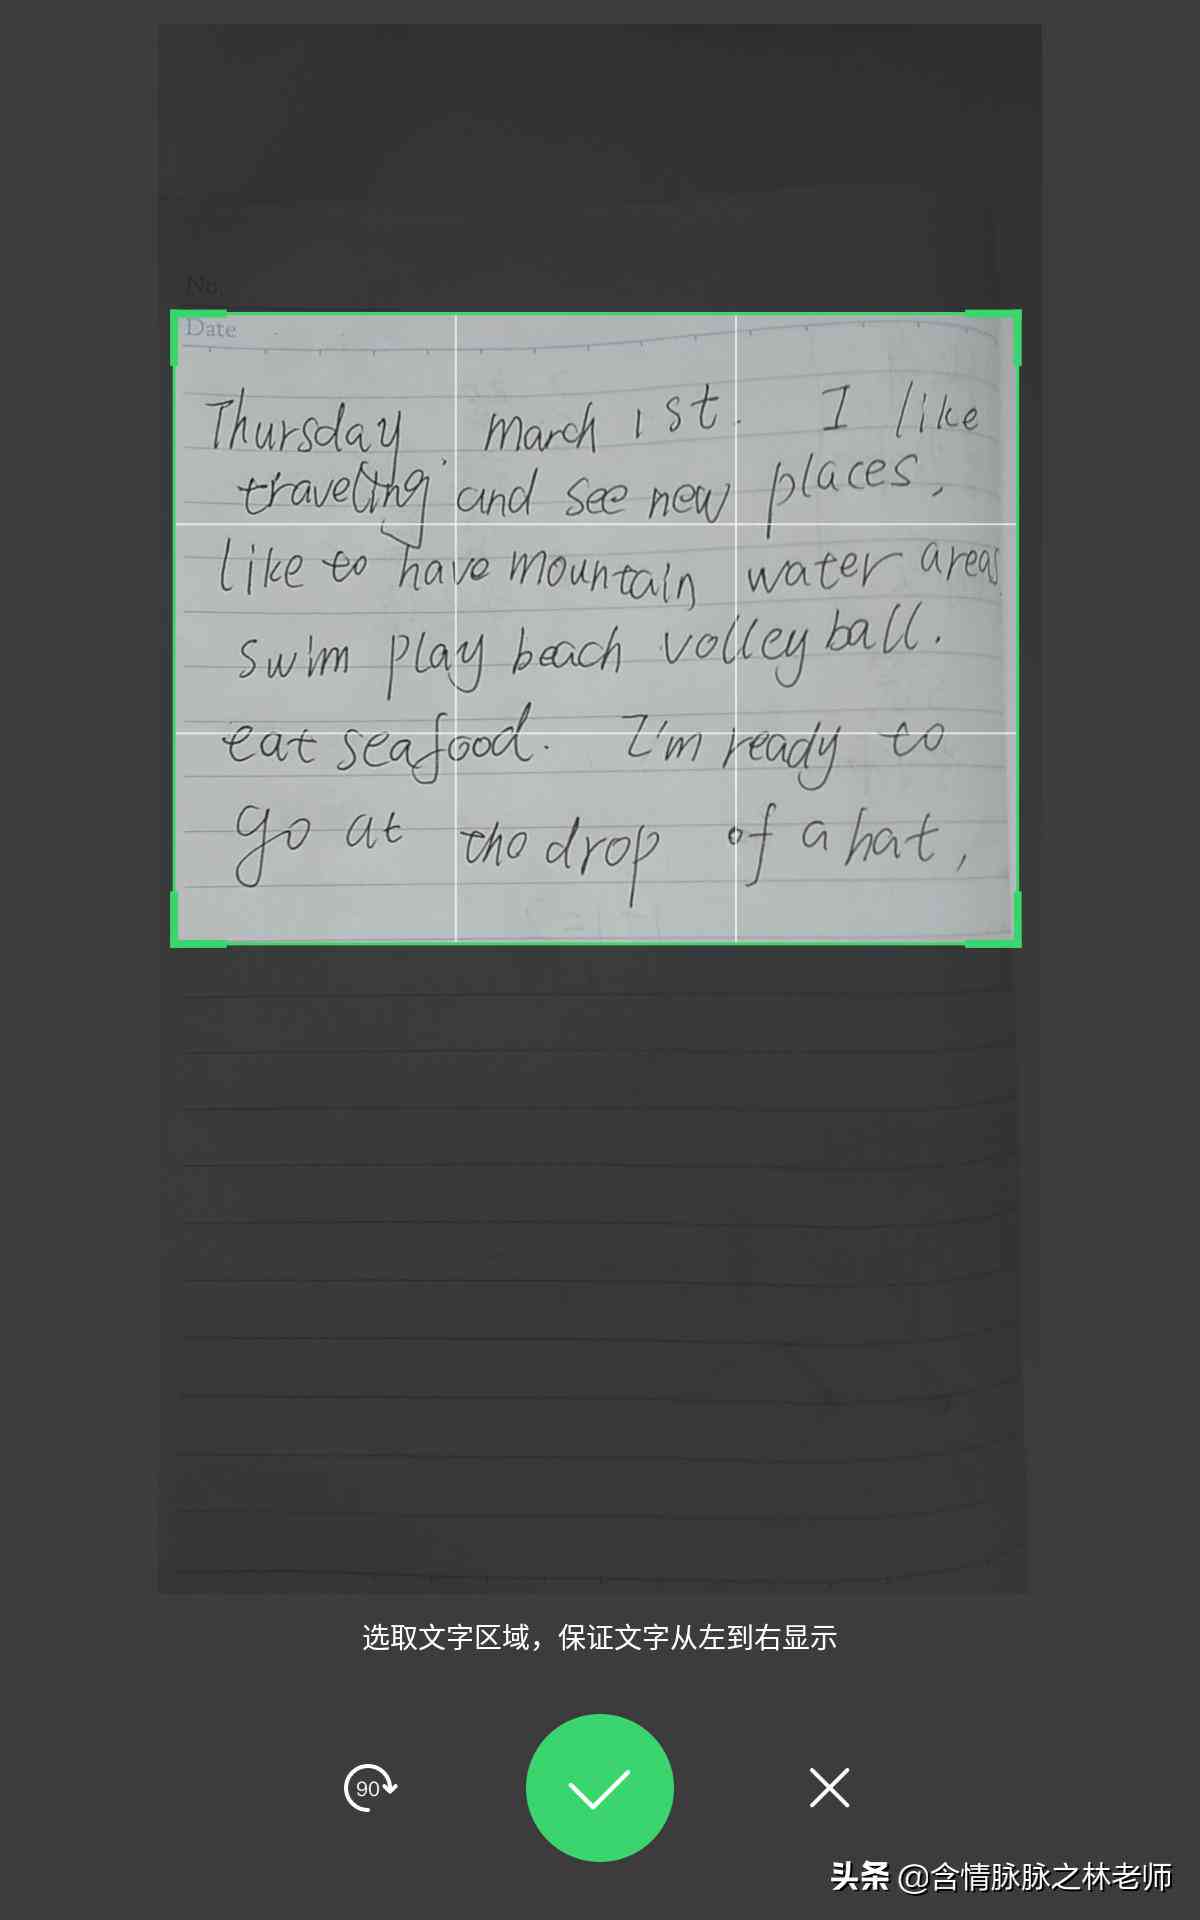 No.
Date
Thursday, march 1st. I like
traveling and see new places,
like to have mountain water areas
swim play beach volleyball.
eat seafood. I'm ready to
go at the drop of a hat,
选取文字区域，保证文字从左到右显示
90
头条 @含情脉脉之林老师